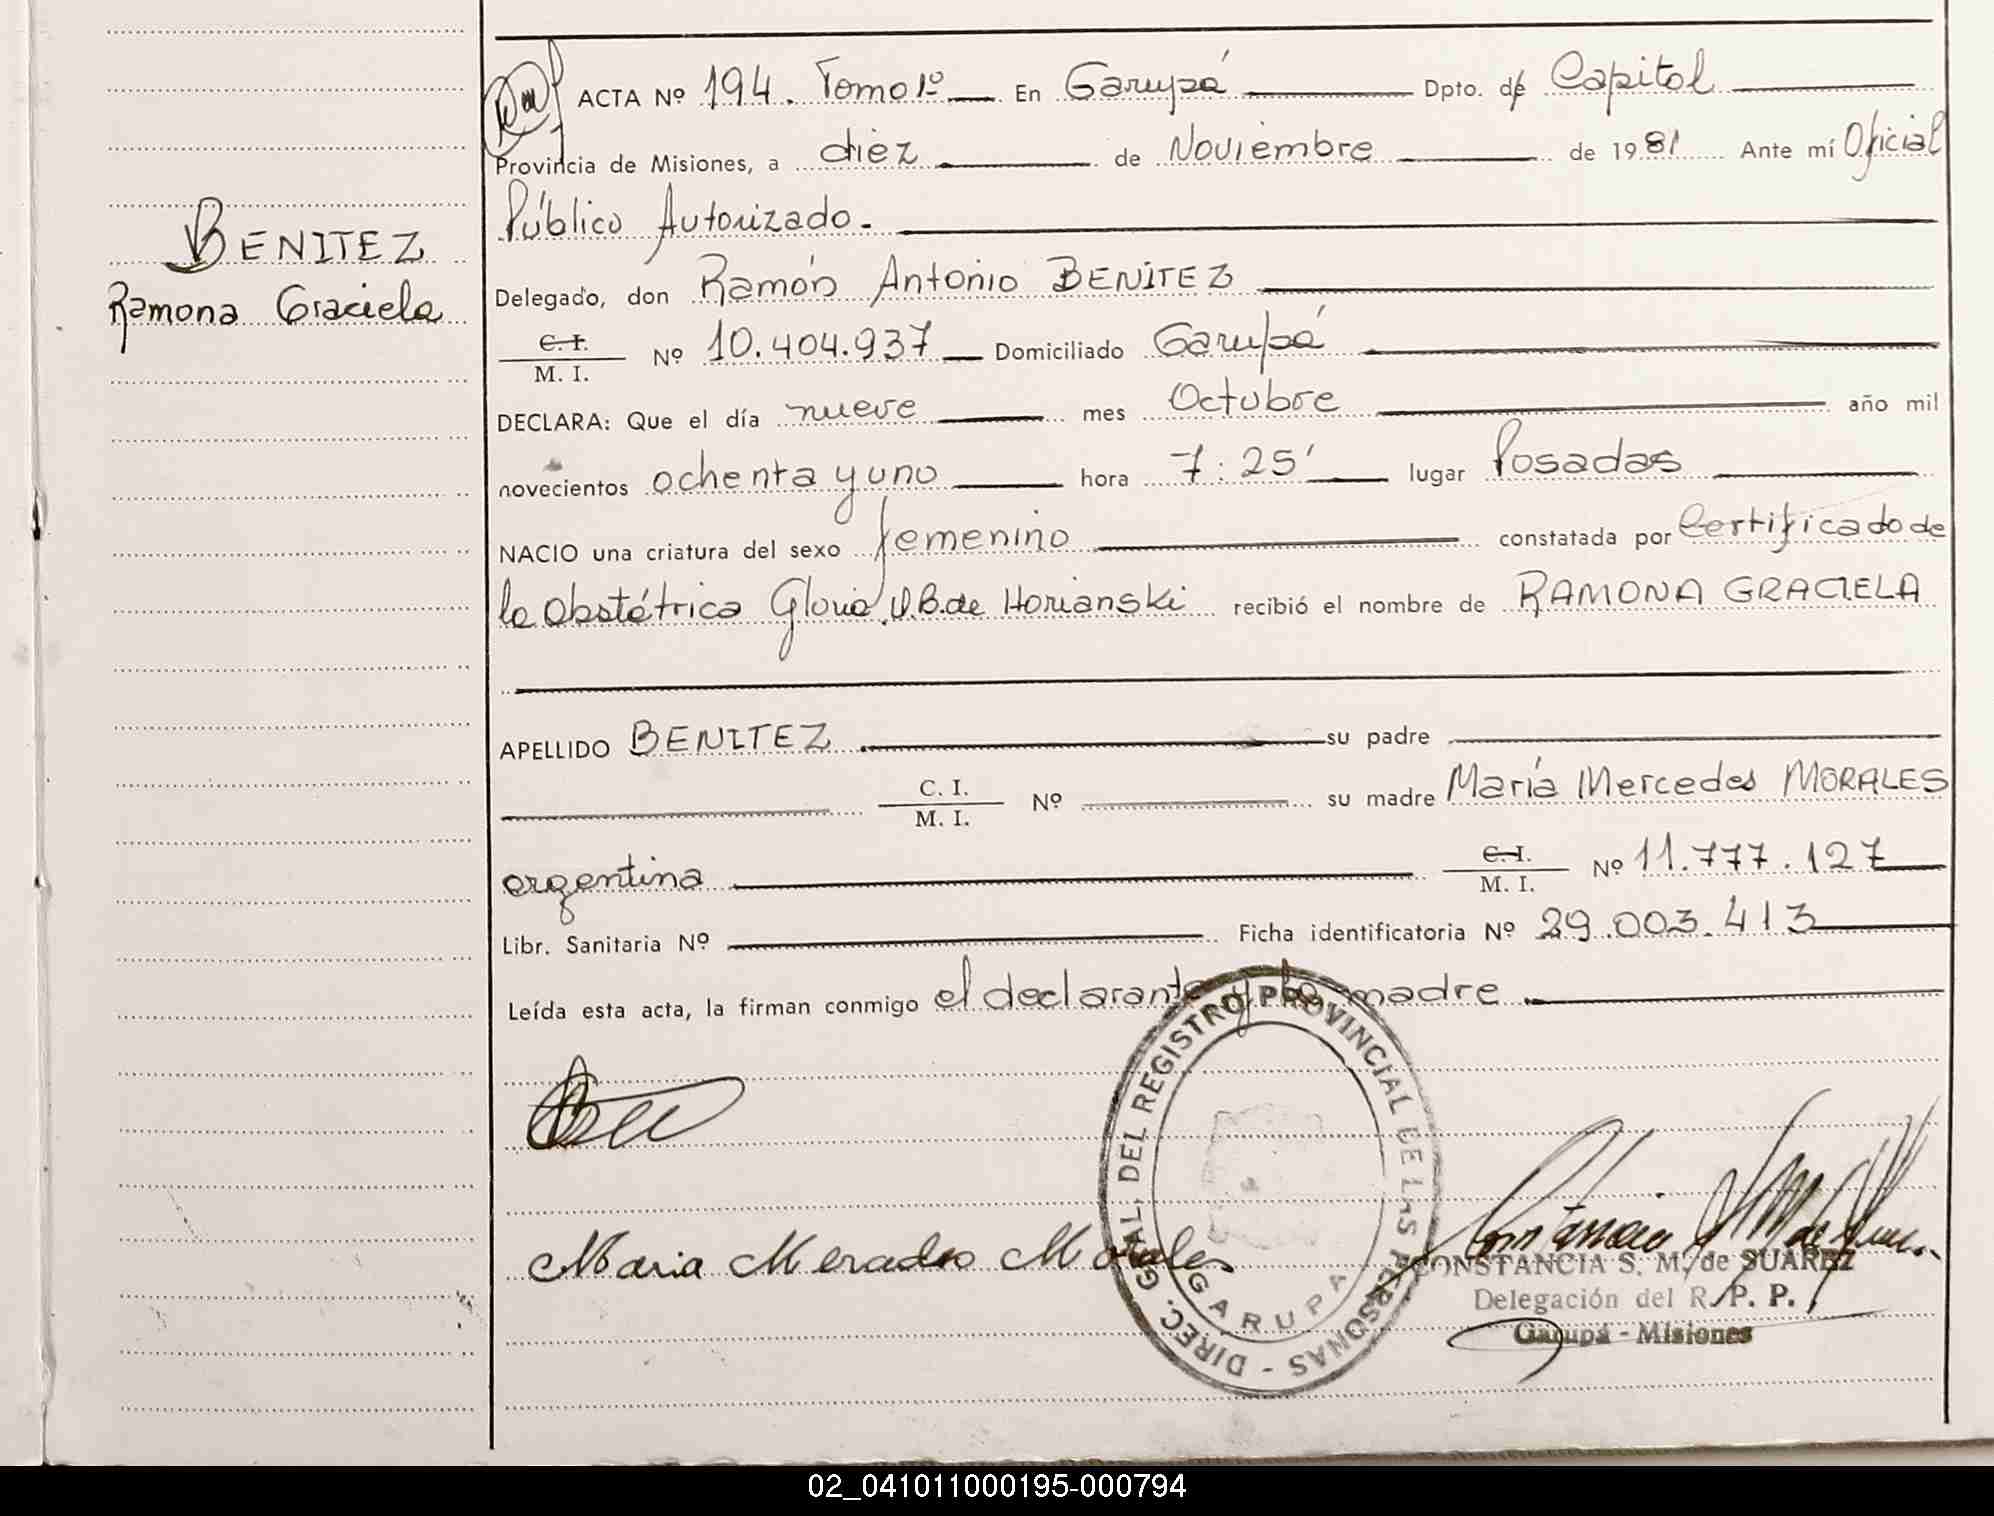 ACTA Nº 194. Tomo 1º En Garupá Dpto. de Capital
Provincia de Misiones, a diez de Noviembre de 1981 Ante mí Oficial
Público Autorizado.
BENITEZ
Ramona Graciela
Delegado, don Ramón Antonio BENITEZ
C. I.
M. I. Nº 10.404.937 Domiciliado Garupá
DECLARA: Que el día nueve mes Octubre año mil
novecientos ochenta y uno hora 7:25' lugar Posadas
NACIO una criatura del sexo femenino constatada por Certificado de
la Obstétrica Gloria B. de Horianski recibió el nombre de RAMONA GRACIELA
APELLIDO BENITEZ su padre
C. I.
M. I. Nº su madre María Mercedes MORALES
argentina C. I.
M. I. Nº 11.777.127
Libr. Sanitaria Nº Ficha identificatoria Nº 29.003.413
Leída esta acta, la firman conmigo el declarante y la madre
DIREC. GRAL. DEL REGISTRO PROVINCIAL DE LAS PERSONAS -
GARUPA
Maria Mercedes Morales
CONSTANCIA S. M. de SUAREZ
Delegación del R. P. P.
Garupá - Misiones
02_041011000195-000794